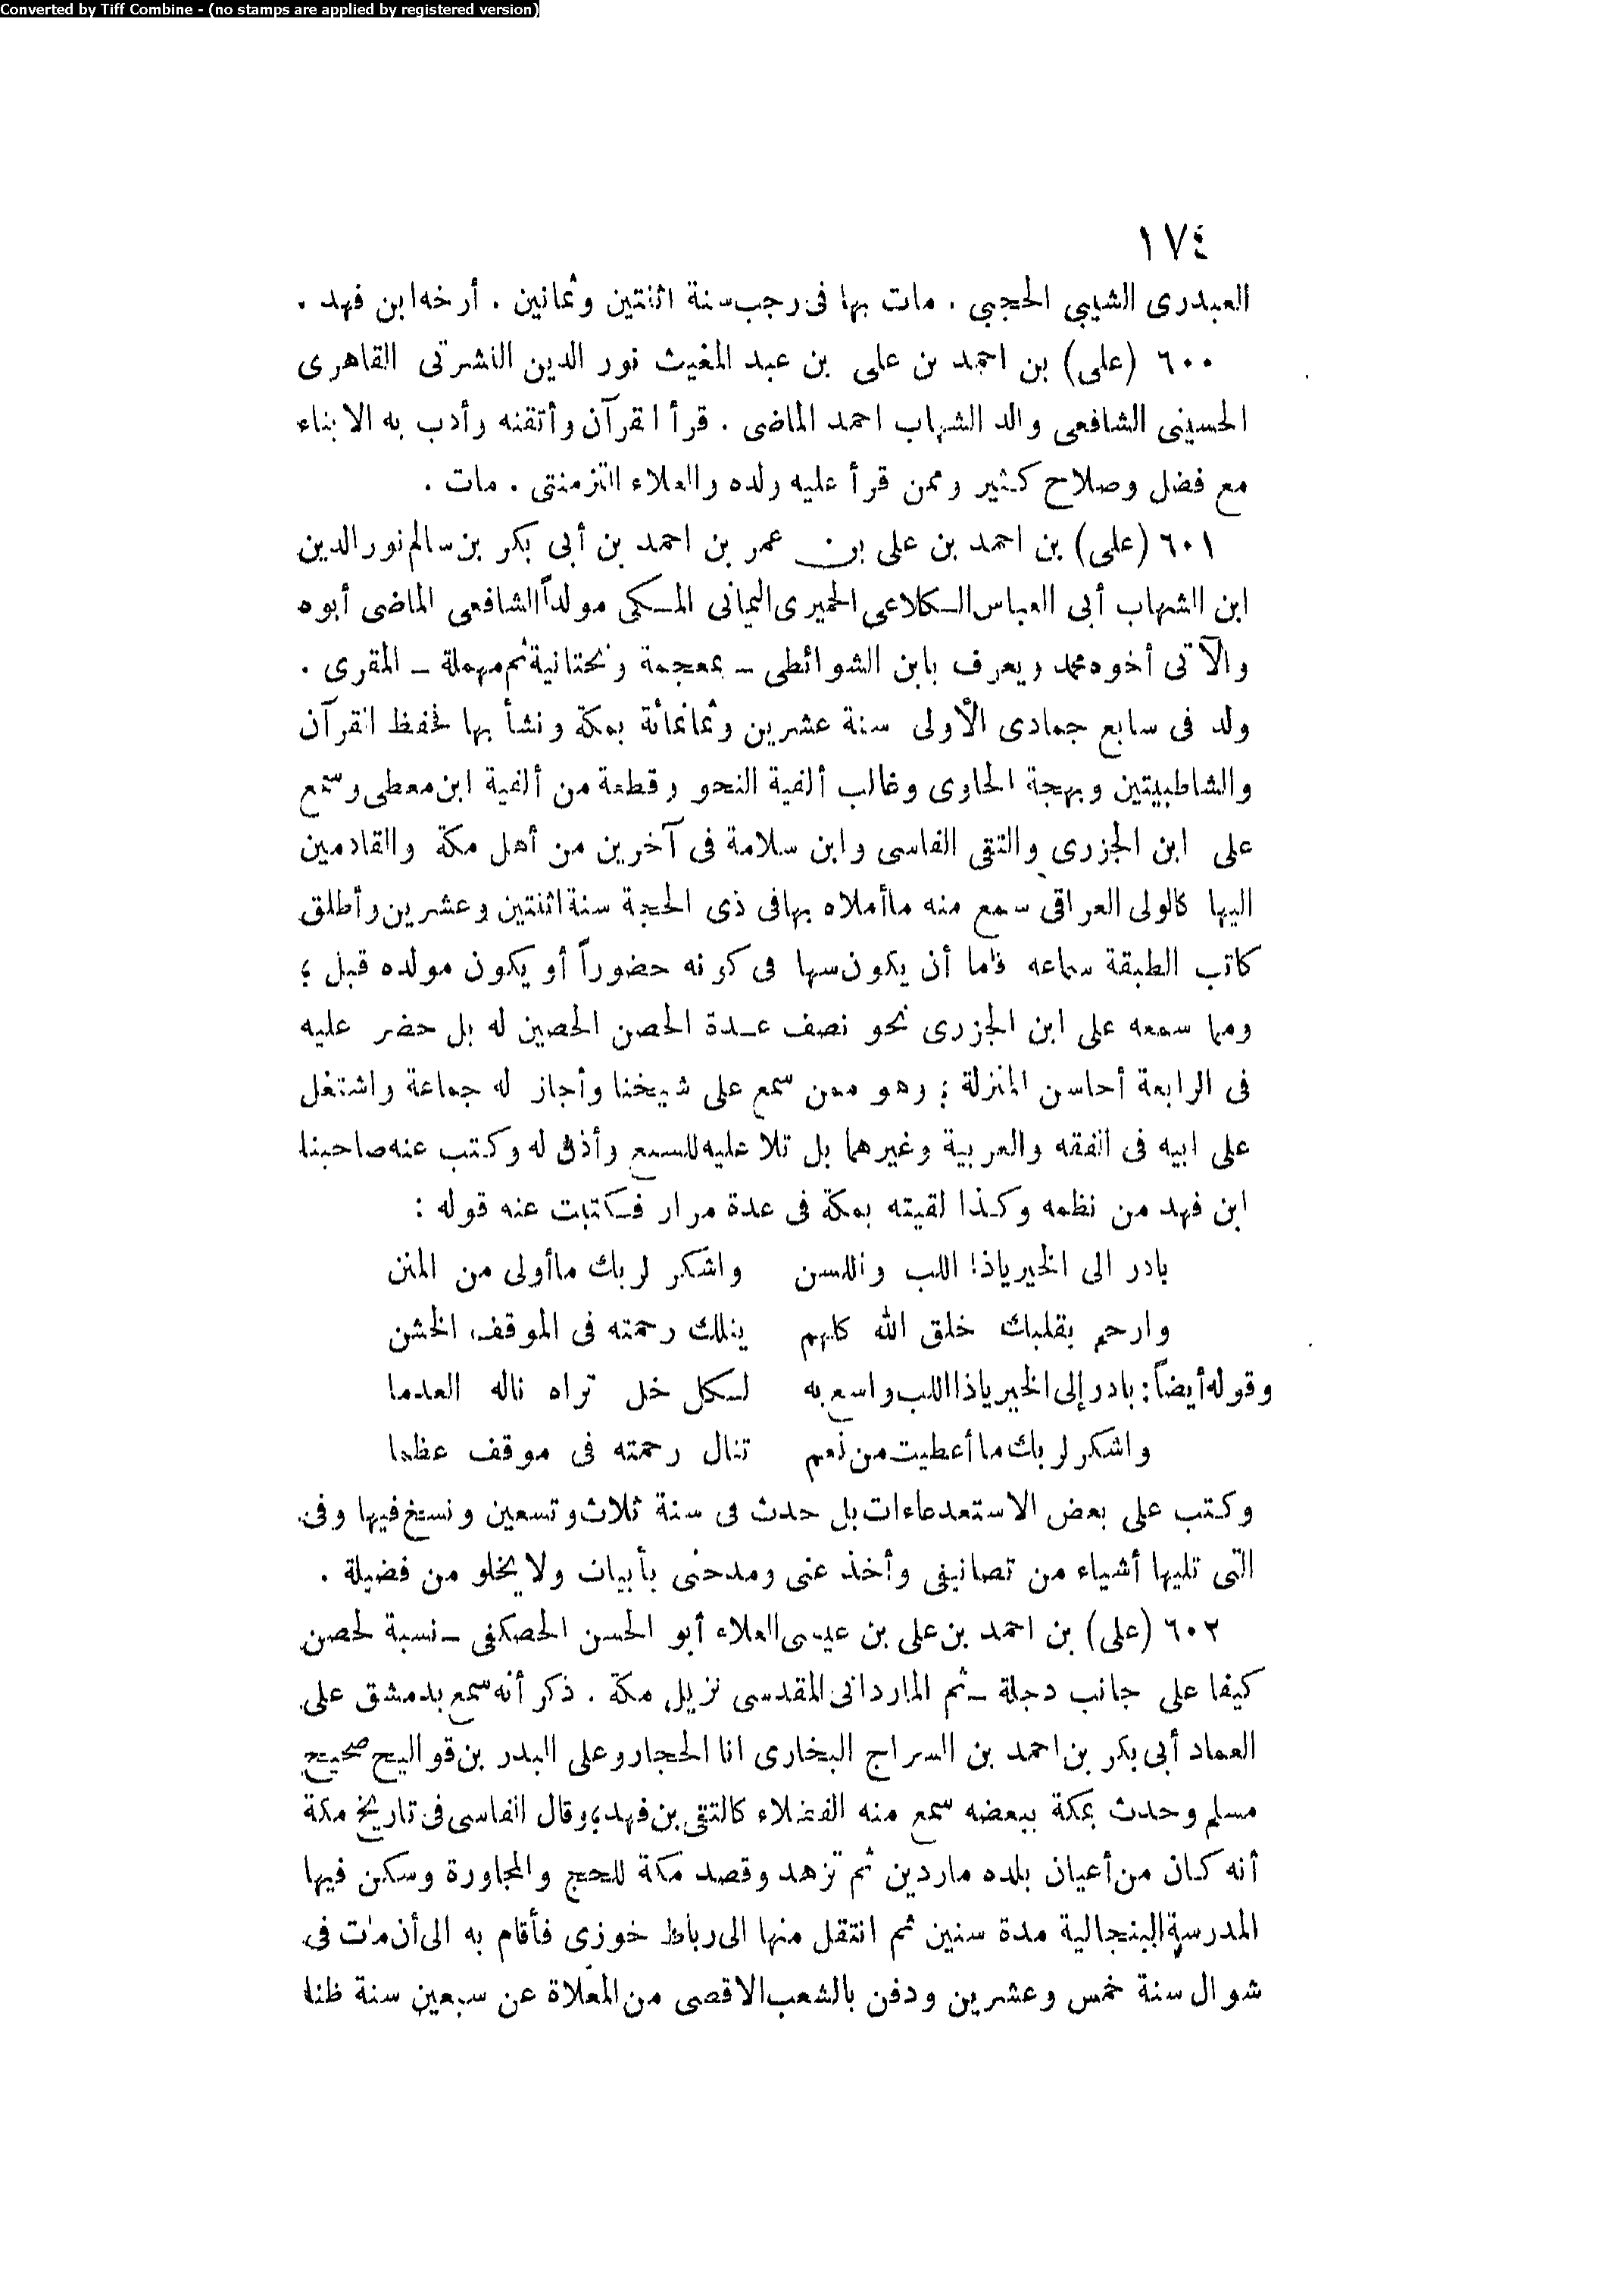 Converted by Tiff Combine - (no stamps are applied by registered version)
١٧٤
العبدرى الشيبي الحجبي . مات بها فى رجب سنة اثنتين وثمانين . أرخه ابن فهد .
٦٠٠ (على) بن احمد بن على بن عبد المغيث نور الدين النشرتى القاهرى
الحسينى الشافعى والد الشهاب احمد الماضى . قرأ القرآن وأتقنه وأدب به الابناء
مع فضل وصلاح كثير وممن قرأ عليه ولده والعلاء التزمنتى . مات .
٦٠١ (على) بن احمد بن على بن عمر بن احمد بن أبى بكر بن سالم نور الدين
ابن الشهاب أبى العباس الكلاعى الحميرى اليمانى المكى مولداً الشافعى الماضى أبوه
والآتى أخوه محمد ويعرف بابن الشوائطى ـ بمعجمة وتحتانية ثم مهملة ـ المقرى .
ولد فى سابع جمادى الأولى سنة عشرين وثمانمائة بمكة ونشأ بها فحفظ القرآن
والشاطبيتين وبهجة الحاوى وغالب ألفية النحو وقطعة من ألفية ابن معطى وسمع
على ابن الجزرى والتقى الفاسى وابن سلامة فى آخرين من أهل مكة والقادمين
اليها كالولى العراقى سمع منه ماأملاه بها فى ذى الحجة سنة اثنتين وعشرين وأطلق
كاتب الطبقة سماعه فاما أن يكون سها فى كونه حضوراً أو يكون مولده قبل ؛
ومما سمعه على ابن الجزرى نحو نصف عدة الحصن الحصين له بل حضر عليه
فى الرابعة أحاسن المنزلة ؛ وهو ممن سمع على شيخنا وأجاز له جماعة واشتغل
على ابيه فى الفقه والعربية وغيرهما بل تلا عليه للسبع وأذن له وكتب عنه صاحبنا
ابن فهد من نظمه وكذا لقيته بمكة فى عدة مرار فكتبت عنه قوله :
بادر الى الخير ياذا اللب واللسن واشكر لربك ماأولى من المنن
وارحم بقلبك خلق الله كلهم ينلك رحمته فى الموقف الخشن
وقوله أيضاً : بادر إلى الخير ياذا اللب واسع به لكل خل تراه ناله العدما
واشكر لربك ما أعطيت من نعم تنال رحمته فى موقف عظما
وكتب على بعض الاستعدعاءات بل حدث فى سنة ثلاث وتسعين ونسخ فيها وفى
التى تليها أشياء من تصانيفى وأخذ عنى ومدحنى بأبيات ولا يخلو من فضيلة .
٦٠٢ (على) بن احمد بن على بن عيسى العلاء أبو الحسن الحصكفى ـ نسبة لحصن
كيفا على جانب دجلة ـ ثم الماردانى المقدسى نزيل مكة . ذكر أنه سمع بدمشق على
العماد أبى بكر بن احمد بن السراج البخارى انا الحجار وعلى البدر بن قواليح صحيح
مسلم وحدث بمكة ببعضه سمع منه الفضلاء كالتقى بن فهد ، وقال الفاسى فى تاريخ مكة
أنه كان من أعيان بلده ماردين ثم تزهد وقصد مكة للحج والمجاورة وسكن فيها
المدرسة البنجالية مدة سنين ثم انتقل منها الى رباط خوزى فأقام به الى أن مات فى
شوال سنة خمس وعشرين ودفن بالشعب الاقصى من المعلاة عن سبعين سنة ظنا